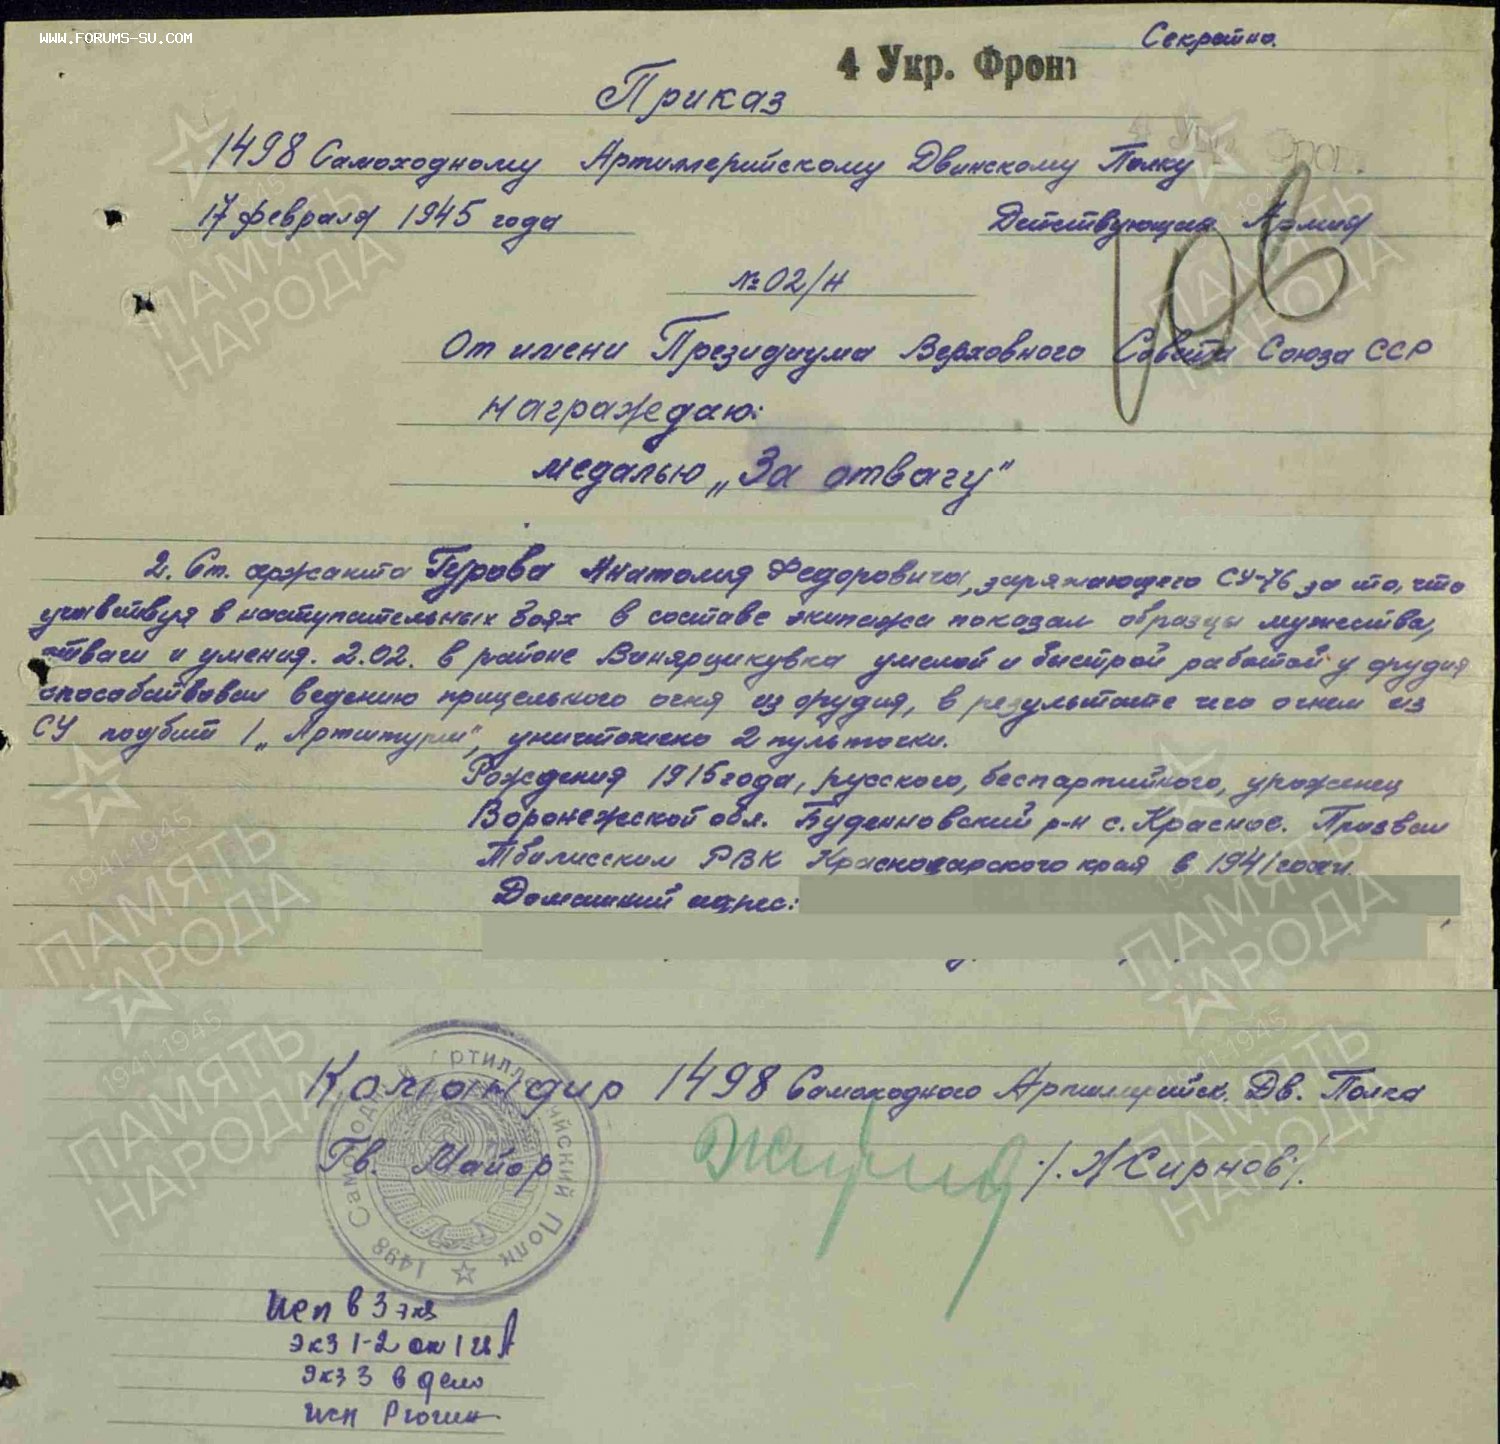 WWW.FORUMS-SU.COM
Секретно.
4 Укр. Фронт
Приказ
1498 Самоходному Артиллерийскому Двинскому Полку
17 февраля 1945 года Действующая Армия
№ 02/Н
От имени Президиума Верховного Совета Союза ССР
награждаю:
медалью „За отвагу"
2. Ст. сержанта Гурова Анатолия Федоровича, заряжающего СУ-76 за то, что
участвуя в наступательных боях в составе экипажа показал образцы мужества,
отваги и умения. 2.02. в районе умелой и быстрой работой у орудия
способствовал ведению прицельного огня из орудия, в результате чего огнем из
СУ подбит 1 „Артштурм", уничтожено 2 пульточки.
Рождения 1915 года, русского, беспартийного, уроженец
Воронежской обл. Буденновский р-н с. Красное. Призван
Тбилисским РВК Краснодарского края в 1941 году.
Домашний адрес:
Командир 1498 Самоходного Артиллерийск. Дв. Полка
Гв. Майор /. Жирнов ./.
1498 Самоходный Артиллерийский Полк
Исп в 3 экз
экз 1-2
Экз 3 в дело
исп
ПАМЯТЬ НАРОДА
1941-1945